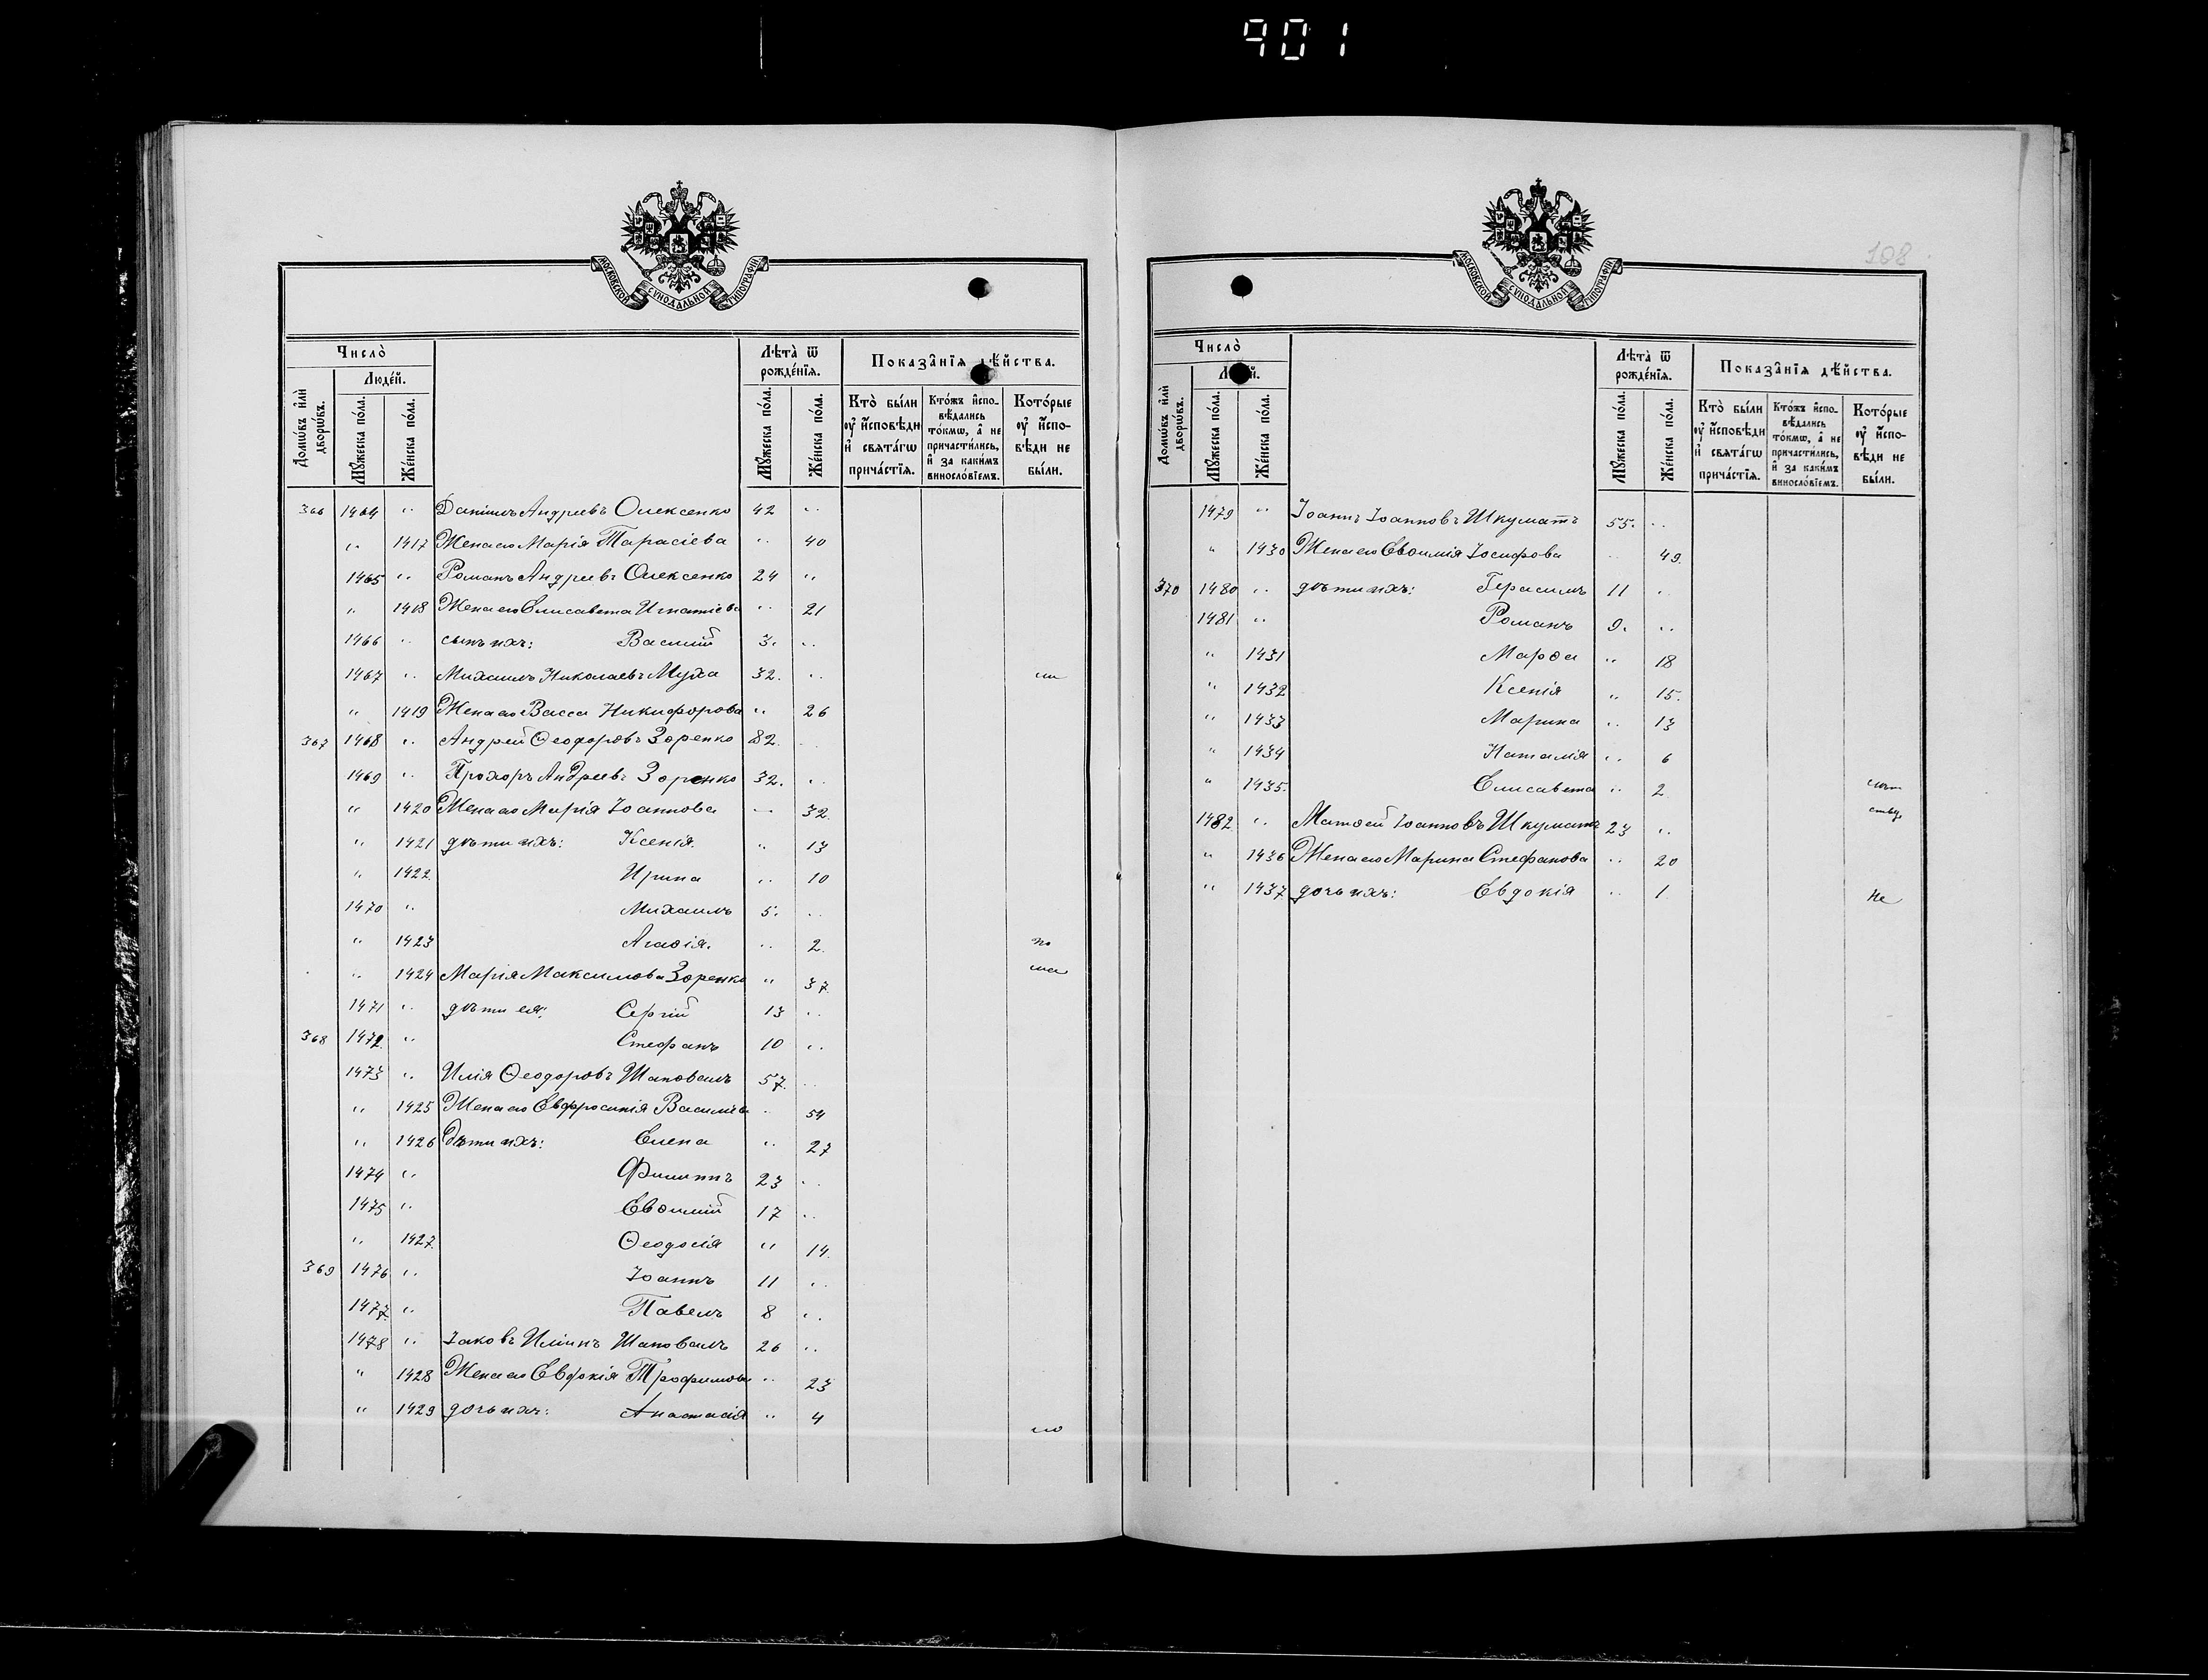 901
МОСКОВСКОЙ СѴНОДАЛЬНОЙ ТИПОГРАФІИ
Число̀
Люде́й.
Домѡ́въ и҆лѝ дворѡ́въ.
Мꙋ́жеска по́ла.
Же́нска по́ла.
Лѣта̀ ѿ рожде́нїѧ.
Мꙋ́жеска по́ла.
Же́нска по́ла.
Показа̑нїѧ дѣ́йства.
Кто̀ бы́ли ᲂу҆ и҆́сповѣди и҆ свѧта́гѡ прича́стїѧ.
Кто́жъ и҆спо-вѣ́дались то́кмѡ, а҆ не причасти́лись, и҆ за каки́мъ виносло́вїемъ.
Кото́рые ᲂу҆ и҆́спо-вѣди не бы́ли.
366 1464 " Даніилъ Андреевъ Олексенко 42 "
" 1417 Жена его Марія Тарасіева " 40
1465 " Романъ Андреевъ Олексенко 24 "
" 1418 Жена его Елисавета Игнатіева " 21
1466 " сынъ ихъ: Василій 3. "
1467 " Михаилъ Николаевъ Муха 32. "
" 1419 Жена его Васса Никифорова " 26
367 1468 " Андрей Ѳеодоровъ Зоренко 82 "
1469 " Прохоръ Андреевъ Зоренко 32. "
" 1420 Жена его Марія Іоаннова " 32.
" 1421 дѣти ихъ: Ксенія. " 13
" 1422 Ирина " 10
1470 " Михаилъ 5. "
" 1423 Агаѳія. " 2. по
" 1424 Марія Максимова Зоренко " 37 ма
1471 " дѣти ея: Сергій 13 "
368 1472 " Стефанъ 10 "
1473 " Илія Ѳеодоровъ Шаповалъ 57. "
" 1425 Жена его Евфросинія Василіева " 54
" 1426 Дѣти ихъ: Елена " 27
1474 " Филиппъ 23 "
1475 " Евѳимій 17 "
" 1427 Ѳеодосія " 14.
369 1476 " Іоаннъ 11 "
1477 " Павелъ 8 "
1478 " Іаковъ Иліинъ Шаповалъ 26 "
" 1428 Жена его Евдокія Трофимова " 23
" 1429 дочь ихъ: Анастасія " 4
108
МОСКОВСКОЙ СѴНОДАЛЬНОЙ ТИПОГРАФІИ
Число̀
Люде́й.
Домѡ́въ и҆лѝ дворѡ́въ.
Мꙋ́жеска по́ла.
Же́нска по́ла.
Лѣта̀ ѿ рожде́нїѧ.
Мꙋ́жеска по́ла.
Же́нска по́ла.
Показа̑нїѧ дѣ́йства.
Кто̀ бы́ли ᲂу҆ и҆́сповѣди и҆ свѧта́гѡ прича́стїѧ.
Кто́жъ и҆спо-вѣ́дались то́кмѡ, а҆ не причасти́лись, и҆ за каки́мъ виносло́вїемъ.
Кото́рые ᲂу҆ и҆́спо-вѣди не бы́ли.
1479 " Іоаннъ Іоанновъ Шкуматъ 55. "
" 1430 Жена его Евѳимія Іосифова " 49.
370 1480 " дѣти ихъ: Герасимъ 11 "
1481 " Романъ 9. "
" 1431 Марѳа " 18
" 1432 Ксенія " 15.
" 1433 Марина " 13
" 1434 Наталія " 6
" 1435. Елисавета " 2
1482 " Матѳей Іоанновъ Шкуматъ 23 "
" 1436 Жена его Марина Стефанова " 20
" 1437 дочь ихъ: Евдокія " 1. не